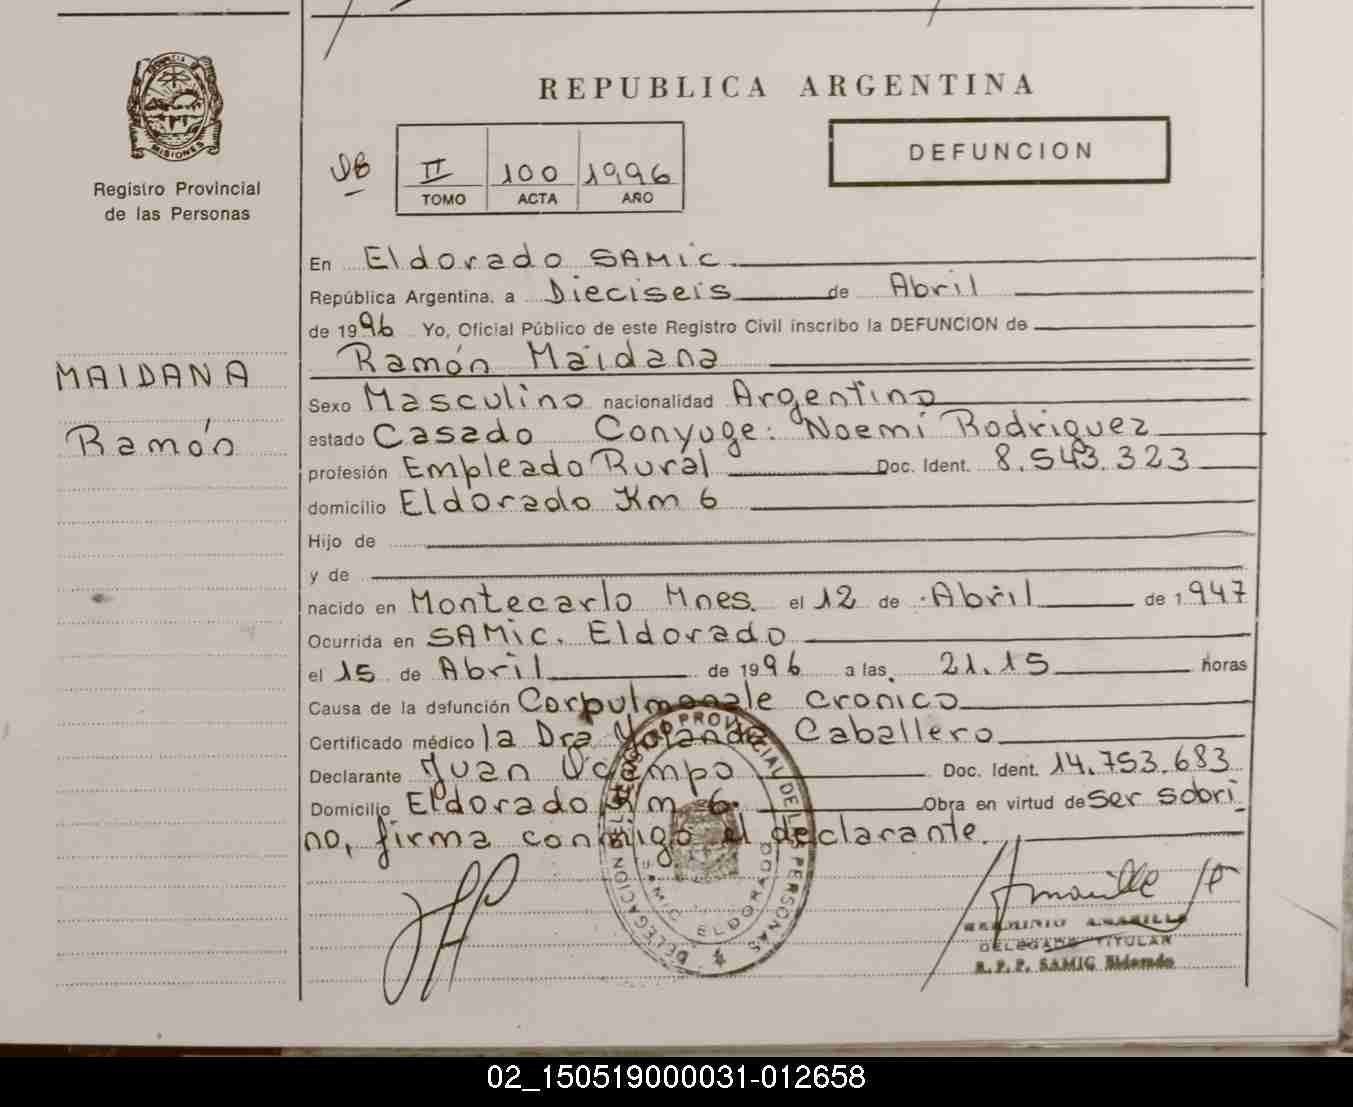 PROVINCIA DE MISIONES
Registro Provincial
de las Personas
MAIDANA
Ramón
REPUBLICA ARGENTINA
DEFUNCION
II 100 1996
TOMO ACTA AÑO
En Eldorado SAMIC
República Argentina, a Dieciseis de Abril
de 1996 Yo, Oficial Público de este Registro Civil inscribo la DEFUNCION de
Ramón Maidana
Sexo Masculino nacionalidad Argentino
estado Casado Conyuge: Noemí Rodriguez
profesión Empleado Rural Doc. Ident. 8.543.323
domicilio Eldorado Km 6
Hijo de
y de
nacido en Montecarlo Mnes. el 12 de Abril de 1947
Ocurrida en SAMIC. Eldorado
el 15 de Abril de 1996 a las 21.15 horas
Causa de la defunción Corpulmonale cronico
Certificado médico la Dra Yolanda Caballero
Declarante Juan Ocampo Doc. Ident. 14.753.683
Domicilio Eldorado Km 6. Obra en virtud de ser sobri
no, firma conmigo el declarante.
REGISTRO PROVINCIAL DE LAS PERSONAS
DELEGACION
SAMIC ELDORADO
HERMINIO AMARILLA
DELEGADO TITULAR
R. P. P. SAMIC Eldorado
02_150519000031-012658